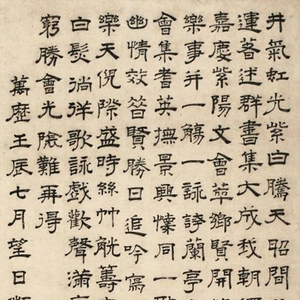 井氣虹光紫白騰天昭間
運著述群書集大成我朝
嘉慶紫陽文會萃鄉賢開
樂事并一觴一詠諺蘭亭
會集耆英撫景興懷同一
幽情效昔賢勝日追吟寫
樂天俔際盛時絲竹觥籌
白髮徜徉歌詠戲歡聲滿
窮勝會光陰難再得
萬歷壬辰七月望日